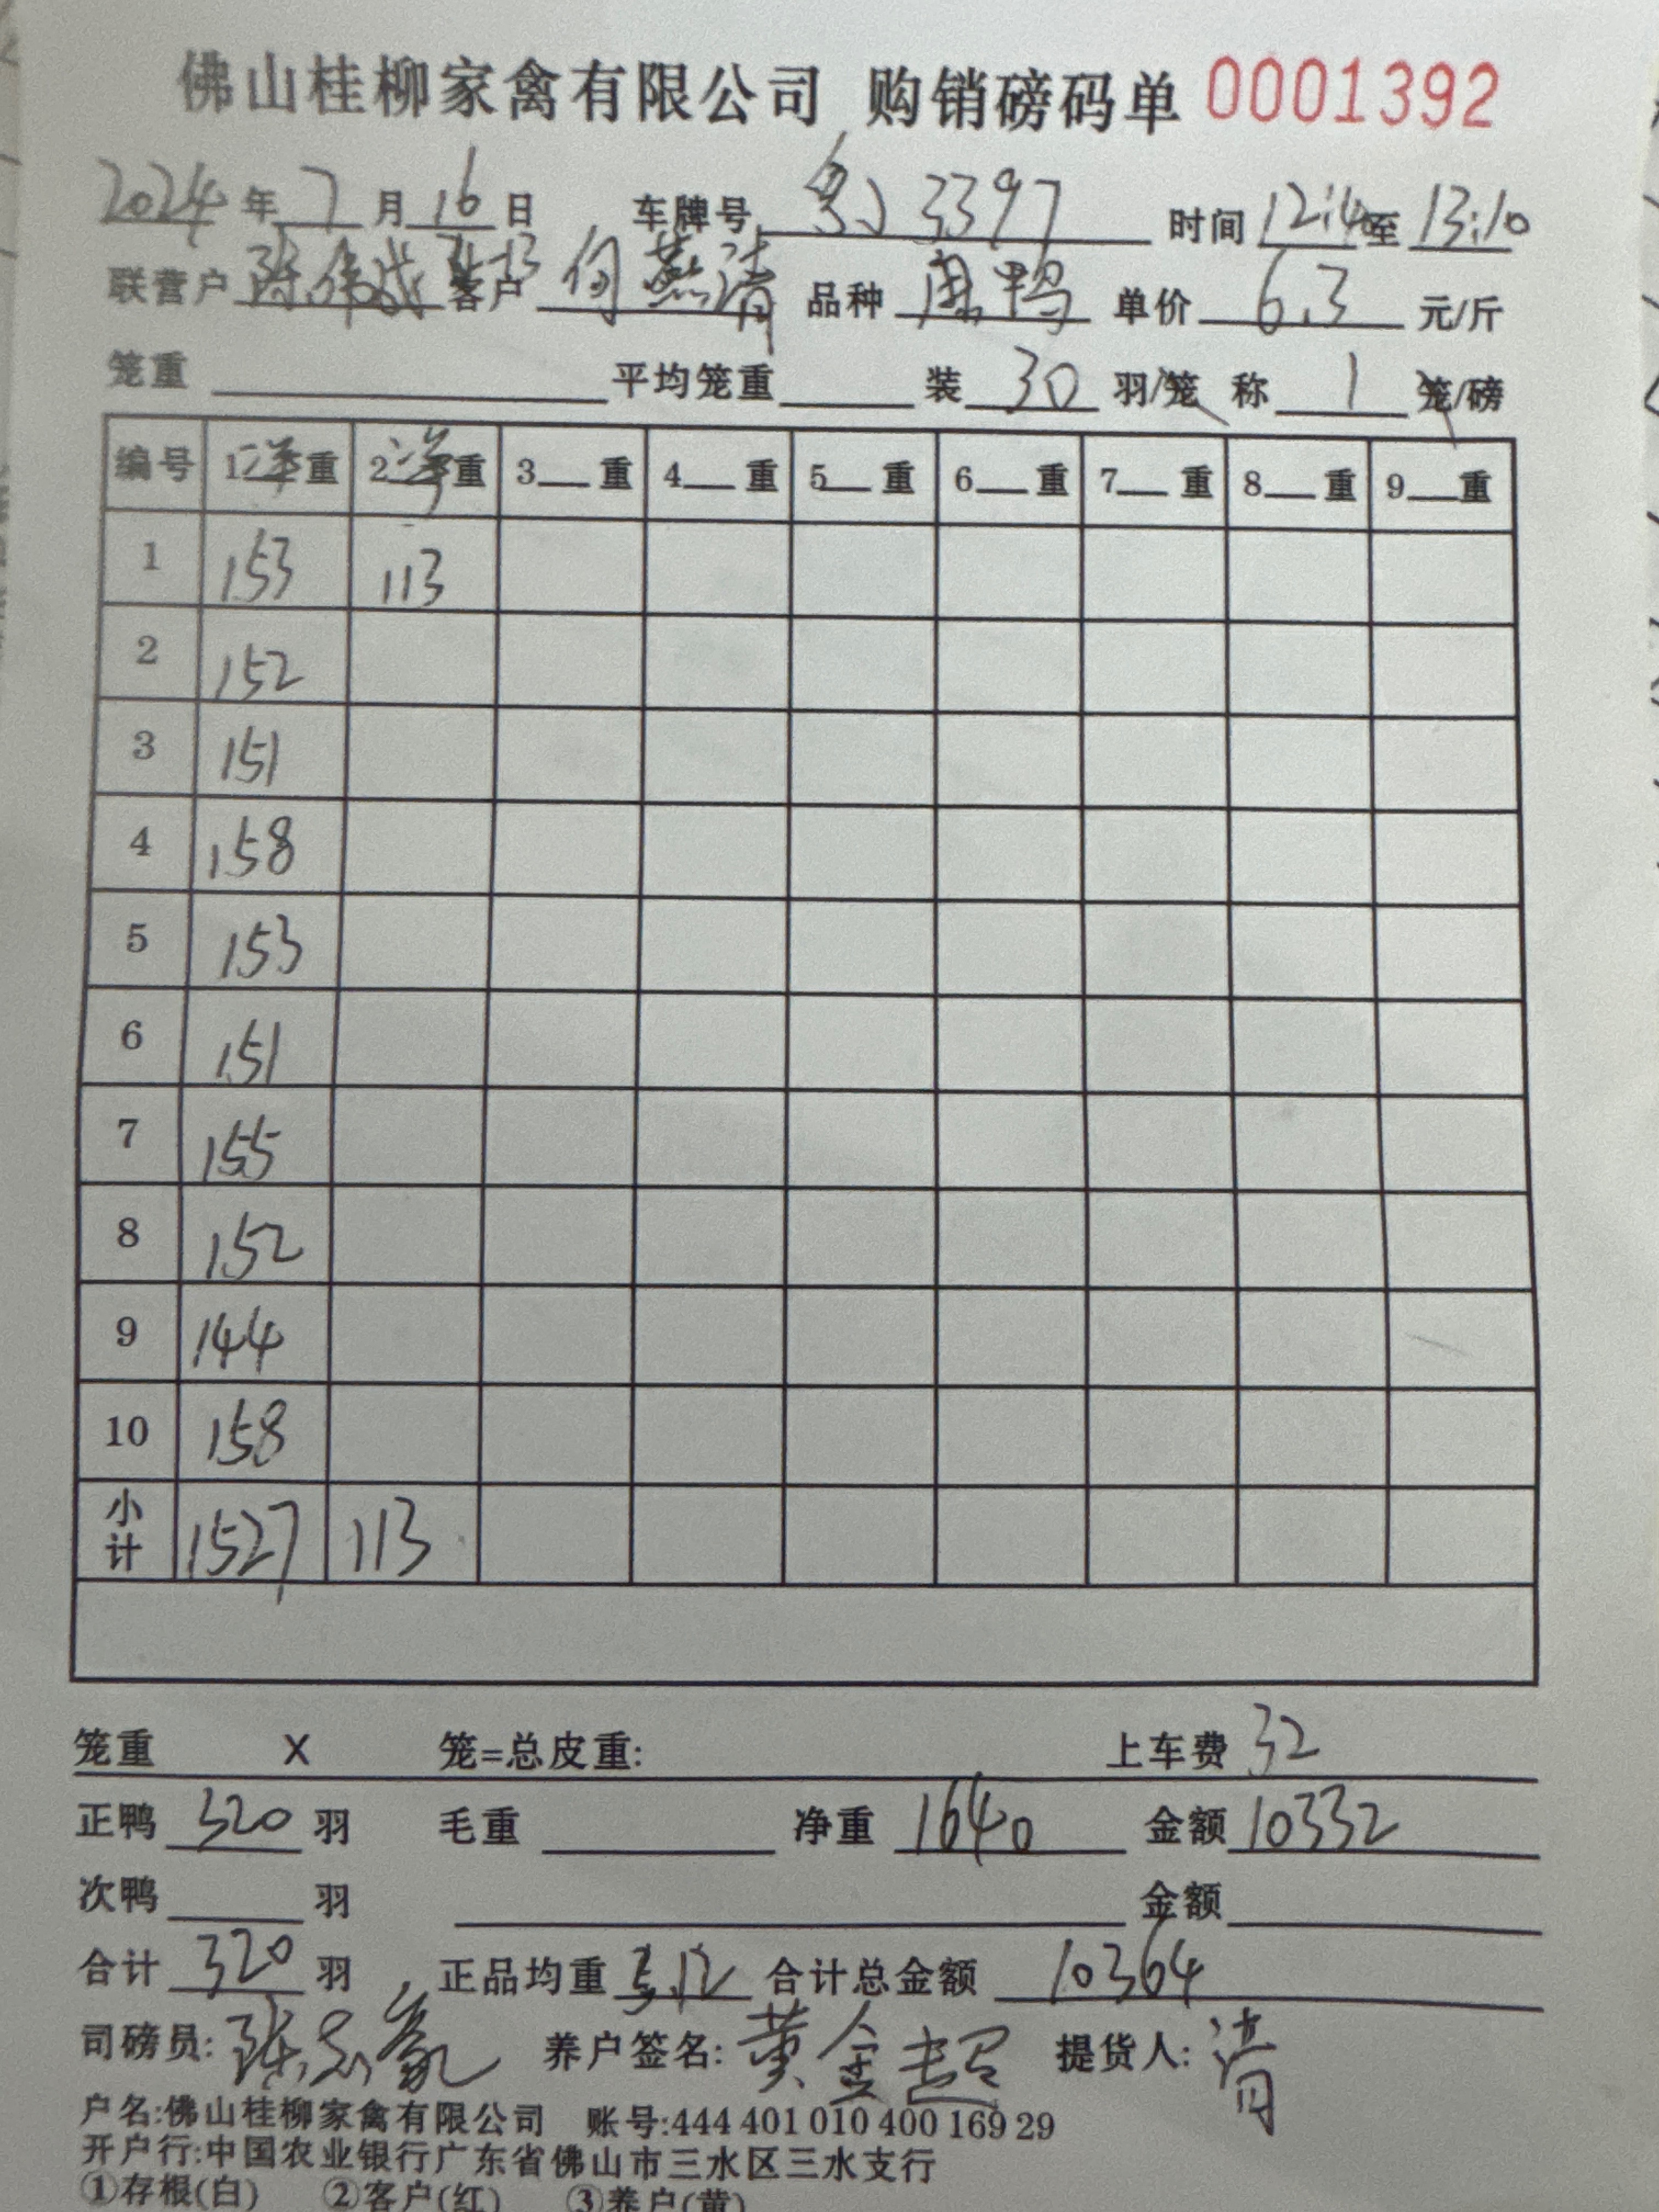 佛山桂柳家禽有限公司 购销磅码单 0001392
2024 年 7 月 16 日 车牌号 3397 时间 12:40 至 13:10
联营户 客户 何燕清 品种 鸭 单价 6.3 元/斤
笼重 平均笼重 装 30 羽/笼 称 1 笼/磅
编号 1净重 2净重 3__重 4__重 5__重 6__重 7__重 8__重 9__重
1 153 113
2 152
3 151
4 158
5 153
6 151
7 155
8 152
9 144
10 158
小计 1527 113
笼重 X 笼=总皮重: 上车费 32
正鸭 320 羽 毛重 净重 1640 金额 10332
次鸭 羽 金额
合计 320 羽 正品均重 5.12 合计总金额 10364
司磅员: 养户签名: 黄金超 提货人: 清
户名:佛山桂柳家禽有限公司 账号:444 401 010 400 169 29
开户行:中国农业银行广东省佛山市三水区三水支行
①存根(白) ②客户(红) ③养户(黄)